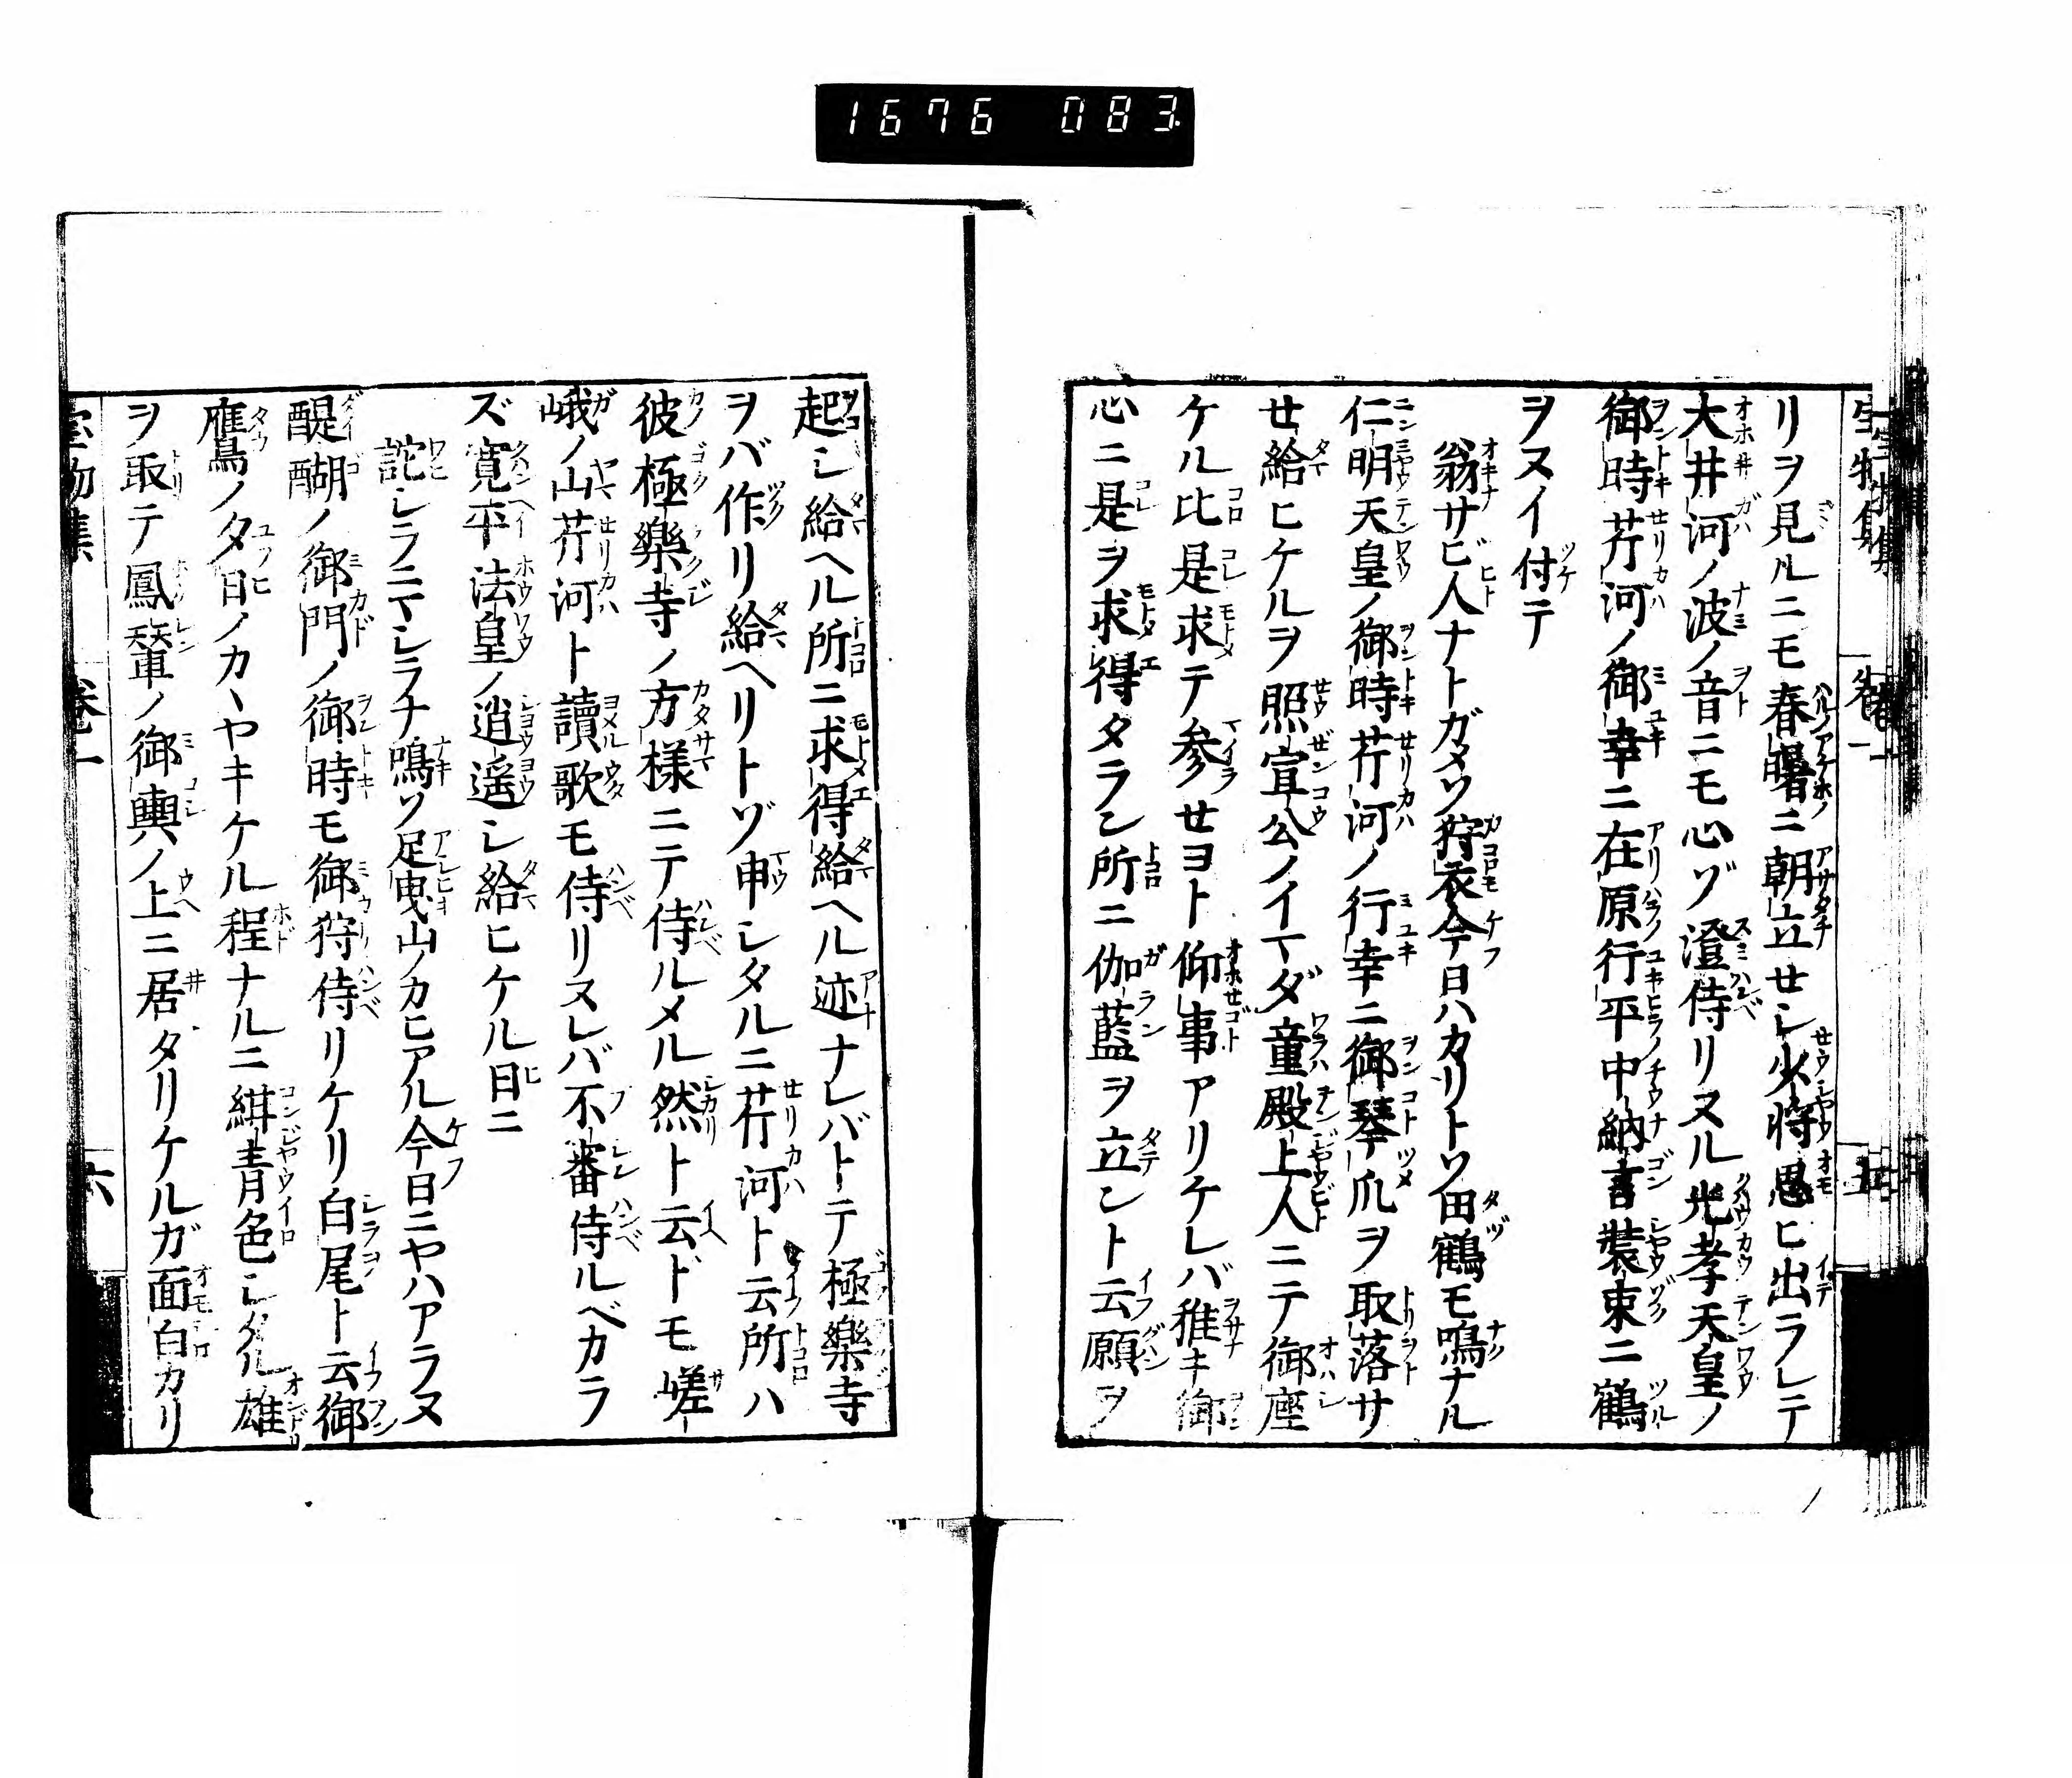 1676 083
宝物集 卷一 五
リヲ見ルニモ春曙ニ朝立セシ少将愚ヒ出ラレテ
大井河ノ波ノ音ニモ心ゾ澄侍リヌル光孝天皇ノ
御時芹河ノ御幸ニ在原行平中納言装束ニ鶴
ヲヌイ付テ
翁サビ人ナトガメソ狩衣今日ハカリトソ田鶴モ鳴ナル
仁明天皇ノ御時芹河ノ行幸ニ御琴爪ヲ取落サ
セ給ヒケルヲ照宣公ノイマダ童殿上人ニテ御座
ケル比是求テ参セヨト仰事アリケレバ稚キ御
心ニ是ヲ求得タラン所ニ伽藍ヲ立ント云願ヲ
起シ給ヘル所ニ求得給ヘル迹ナレバトテ極樂寺
ヲバ作リ給ヘリトゾ申シタルニ芹河ト云所ハ
彼極樂寺ノ方様ニテ侍ルメル然ト云ドモ嵯
峨ノ山芹河ト讀歌モ侍リヌレバ不審侍ルベカラ
ズ寛平法皇ノ逍遥シ給ヒケル日ニ
詫シラニマシラナ鳴ソ足曳山ノカヒアル今日ニヤハアラヌ
醍醐ノ御門ノ御時モ御狩侍リケリ白尾ト云御
鷹ノ夕日ノカヽヤキケル程ナルニ紺青色シタル雄
ヲ取テ鳳輦ノ御輿ノ上ニ居タリケルガ面白カリ
宝物集 卷一 六